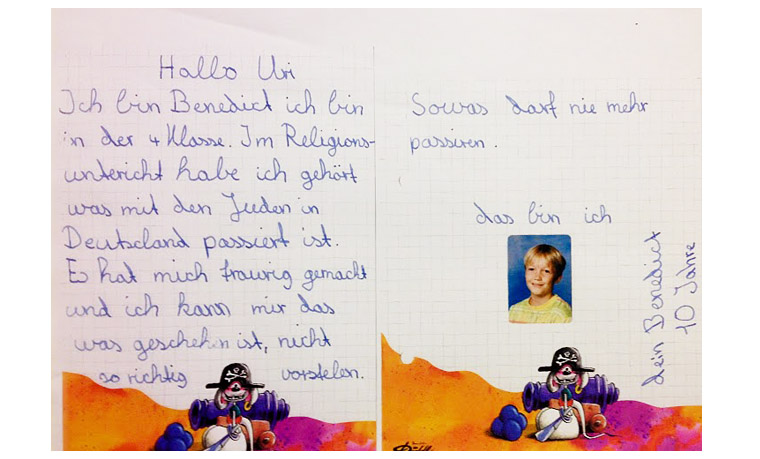 Hallo Uri
Ich bin Benedict ich bin
in der 4 Klasse. Im Religions-
untericht habe ich gehört
was mit den Jueden in
Deutschland passiert ist.
Es hat mich traurig gemacht
und ich kann mir das
was geschehen ist, nicht
so richtig vorstelen.
Sowas darf nie mehr
passiren.
das bin ich
dein Benedict
10 Jahre